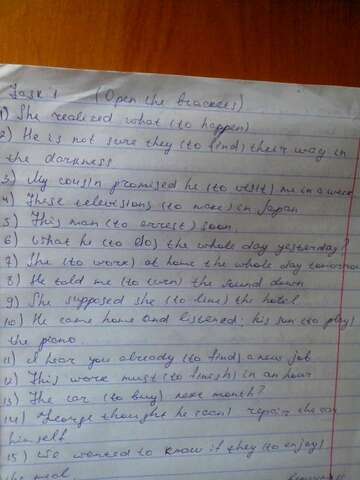 Task 1 (Open the brackets)
1) She realized what (to happen)
2) He is not sure they (to find) their way in
the darkness
3) My cousin promised he (to visit) me in a week
4) These televisions (to make) in Japan
5) This man (to arrest) soon
6) What he (to do) the whole day yesterday?
7) She (to work) at home the whole day tomorrow
8) He told me (to turn) the sound down
9) She supposed she (to like) the hotel
10) He came home and listened: his son (to play)
the piano
11) I hear you already (to find) a new job
12) This work must (to finish) in an hour
13) The car (to buy) next month?
14) George thought he (can) repair the car
himself
15) We wanted to know if they (to enjoy)
the meal.